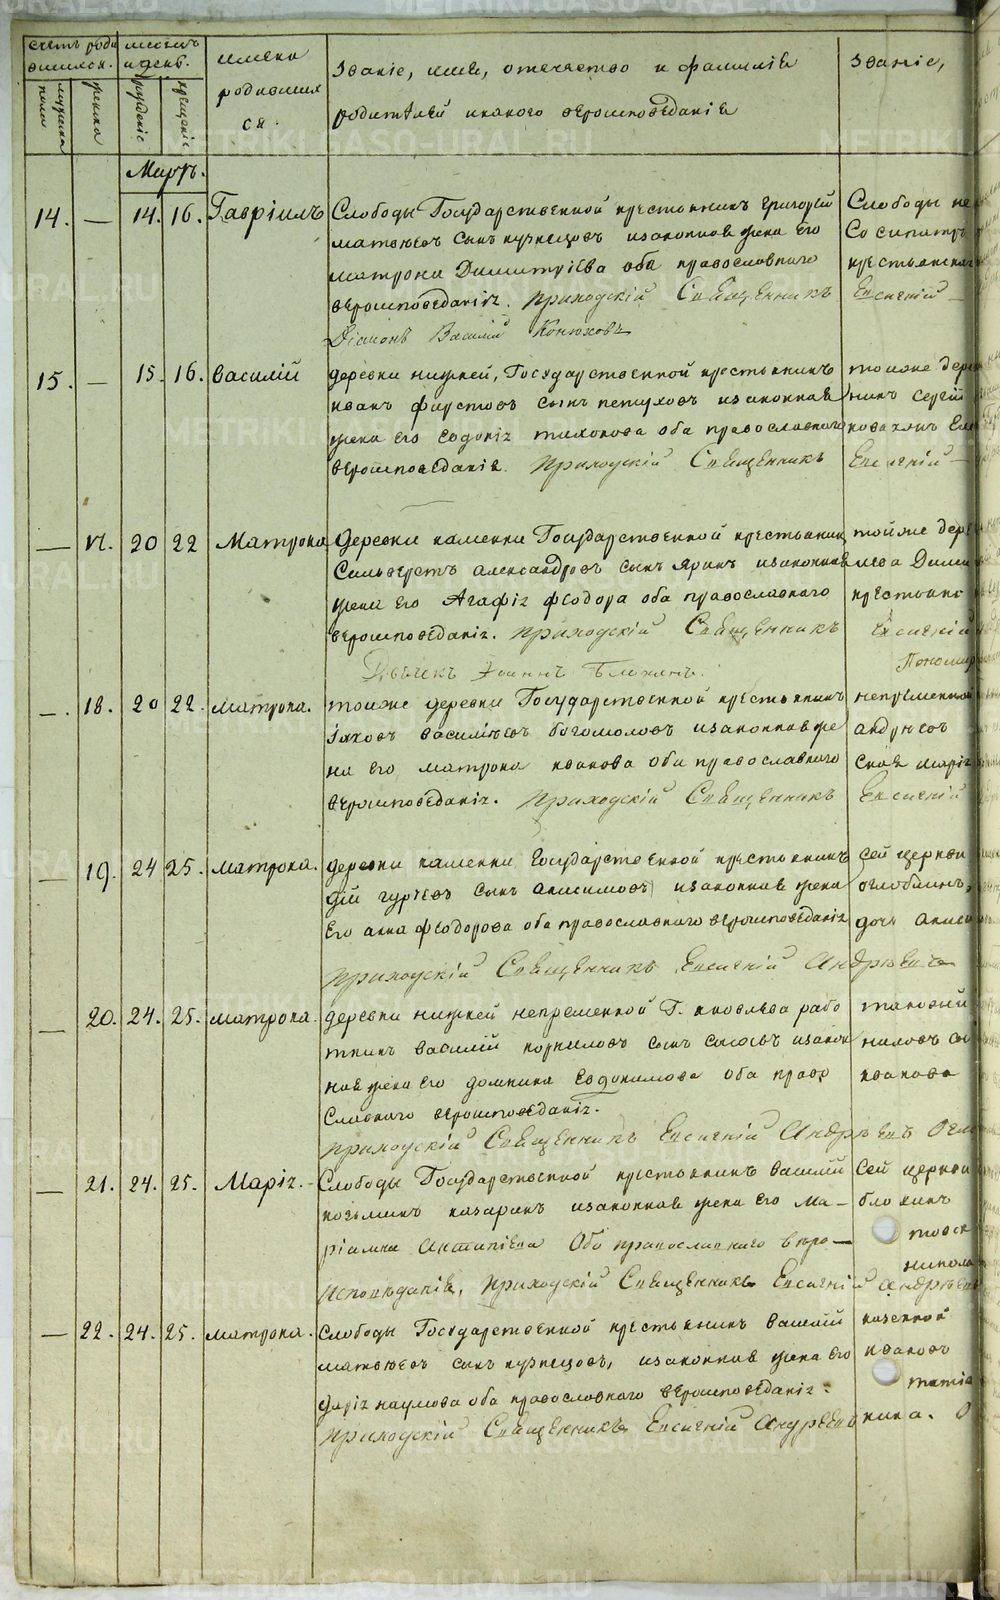 счетъ роди
вшихся.
мужеска
пола
женска
месяцъ
и день.
рожденіе
крещеніе
имена
родивших
ся.
званіе, имя, отечество и фамилія
родителей и какого вероисповеданія
званіе,
Мартъ.
14. — 14. 16. Гавріилъ
Слободы Государственной крестьянинъ Григорій
матвеевъ сынъ кузнецовъ изаконная жена Его
матрона Димитріева оба православнаго
вероисповеданія. приходскій Священникъ
Діаконъ Василій Конюховъ
Слободы
Сосипатръ
крестьянская
Евсигній
15. — 15. 16. василій
деревни нижней, Государственной крестьянинъ
иванъ фирстовъ сынъ петуховъ изаконная
жена Его евдокія тихонова оба православнаго
вероисповеданія. приходскій Священникъ
тойже дер
никъ сергій
Евсигній
— 17. 20 22 Матрона
Деревни каменки Государственной крестьянинъ
Сильверстъ александровъ сынъ яринъ изаконная
жена Его Агафія феодора оба православнаго
вероисповеданія. приходскій Священникъ
Дьячекъ Іоаннъ Блохинъ.
тойже дере
крестьянс
Евсигній
Пономар
— 18. 20 22. матрона.
тоиже деревни Государственной крестьянинъ
іяковъ василіевъ богомоловъ изаконная же
на его матрона иванова оба православнаго
вероисповеданія. приходскій Священникъ
непременной
андреевъ
ская марія
Евсигній
— 19. 24 25. матрона.
деревни каменки Государственной крестьянинъ
дій гурьевъ сынъ анисимовъ изаконная жена
Его анна феодорова оба православнаго вероисповеданія
приходскій Священникъ Евсигній Андреевъ
сей церкви
оглоблинъ,
дочь
— 20. 24. 25. матрона.
деревни нижней непременной Г. яковлева рабо
тникъ василій корниловъ сынъ изакон
ная жена Его домника Евдокимова оба право
славнаго вероисповеданія.
приходскій Священникъ Евсигній Андреевъ Огло
таковий
ниловъ сы
иванова
— 21. 24. 25. Марія.
Слободы Государственной крестьянинъ василій
козьминъ казаринъ изаконная жена Его Ма-
ріамна Антипіева Оба православнаго веро-
исповѣданія, приходскій Священникъ Евсигній Андреевъ
Сей церкви
блохинъ
— 22. 24. 25. матрона.
слободы Государственной крестьянинъ василій
матвеевъ сынъ кузнецовъ, изаконная жена его
дарія наумова оба православнаго вероисповеданія.
приходскій Священникъ Евсигній Андреевъ
казенной
ивановъ
татіа
нина. О
METRIKI.GASO-URAL.RU